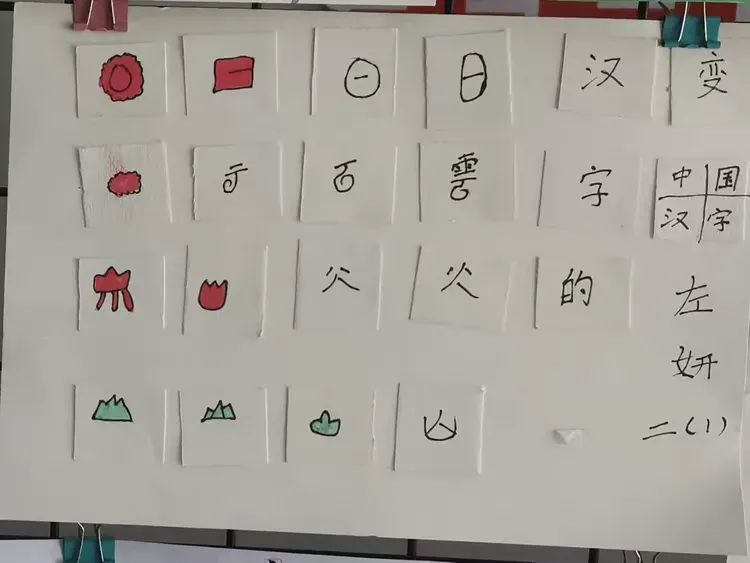 日 汉 变
雲 字 中 国
汉 字
火 火 的 左
妍
山 二(1)